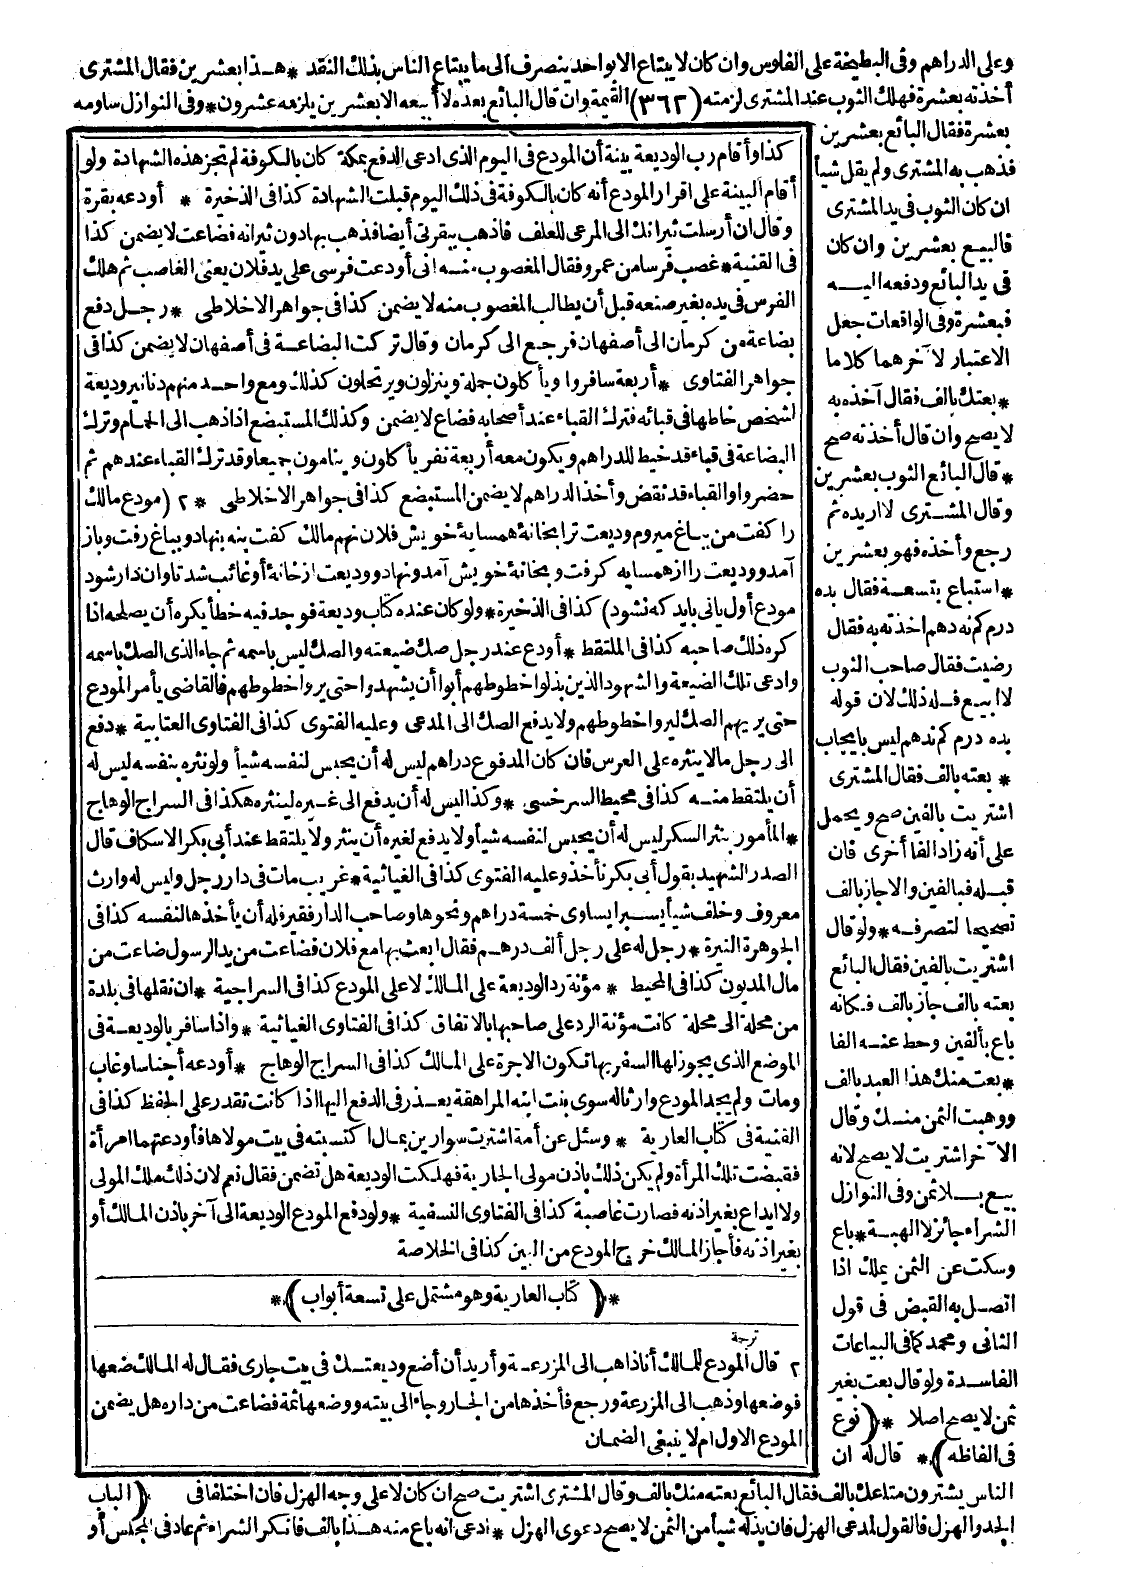 وعلى الدراهم وفى البطيخة على الفلوس وان كان لا يبتاع الا بواحد ينصرف الى ما يبتاع الناس بذلك النقد * هـذا بعشرين فقال المشترى
أخذته بعشرة فهلك الثوب عند المشترى لزمته (٣٦٢) القيمة وان قال البائع بعده لا أبيعه الا بعشرين يلزمه عشرون * وفى النوازل ساومه
بعشرة فقال البائع بعشرين
فذهب به المشترى ولم يقل شيأ
ان كان الثوب فى يد المشترى
فالبيع بعشرين وان كان
فى يد البائع ودفعه اليـــه
فبعشرة وفى الواقعات جعل
الاعتبار لآخرهما كلاما
* بعتك بالف فقال آخذه به
لا يصح وان قال أخذته صح
* قال البائع الثوب بعشرين
وقال المشـترى لا اريده ثم
رجع وأخذه فهو بعشرين
* استباع بتسعـة فقال بده
درم كم نه دهم اخذته به فقال
رضيت فقال صاحب الثوب
لا ابيع فـله ذلك لان قوله
بده درم كم ندهم ليس بايجاب
* بعته بالف فقال المشترى
اشتريت بالفين صح ويحمل
على أنه زاد الفا أخرى فان
قبـله فبالفين والا جاز بالف
تصحيحا لتصرفـه * ولو قال
اشتريت بالفين فقال البائع
بعته بالف جاز بالف فـكانه
باع بألفين وحط عنـه الفا
* بعت منك هذا العبد بالف
ووهبت الثمن منـــك وقال
الآخر اشتريت لا يصح لانه
بيع بــلا ثمن وفى النوازل
الشراء جائز لا الهبـــة * باع
وسكت عن الثمن يملك اذا
اتصـل به القبض فى قول
الثانى ومحمد كما فى البياعات
الفاسدة ولو قال بعت بغير
ثمن لا يصح اصلا * (نوع
فى الفاظه) * قال له ان
كذا وأقام رب الوديعة بينة أن المودع فى اليوم الذى ادعى الدفع بمكة كان بالكوفة لم تجز هذه الشهادة ولو
أقام البينة على اقرار المودع أنه كان بالكوفة فى ذلك اليوم قبلت الشهادة كذا فى الذخيرة * أودعه بقرة
وقال ان أرسلت ثيرانك الى المرعى للعلف فاذهب ببقرتى أيضا فذهب بها دون ثيرانه فضاعت لا يضمن كذا
فى القنية * غصب فرسا من عمرو فقال المغصوب منـه انى أودعت فرسى على يد فلان يعنى الغاصب ثم هلك
الفرس فى يده بغير صنعه قبل أن يطالب المغصوب منه لا يضمن كذا فى جواهر الاخلاطى * رجـل دفع
بضاعة من كرمان الى أصفهان فرجع الى كرمان وقال تركت البضاعـة فى أصفهان لا يضمن كذا فى
جواهر الفتاوى * أربعة سافروا ويأكلون جملة وينزلون ويرتحلون كذلك ومع واحـد منهم دنانير وديعة
لشخص خاطها فى قبائه فترك القباء عند أصحابه فضاع لا يضمن وكذلك المستبضع اذا ذهب الى الحمام وترك
البضاعة فى قباء قد خيط للدراهم ويكون معه أربعة نفر يأكلون وينامون جميعا وقد ترك القباء عندهم ثم
حضروا والقباء قد نقض وأخذ الدراهم لا يضمن المستبضع كذا فى جواهر الاخلاطى * ٢ (مودع مالك
را كفت من بباغ ميروم وديعت ترا بخانهٔ همسايهٔ خويش فلان نهم مالك كفت بنه بنهاد وبباغ رفت وباز
آمد ووديعت را از همسايه كرفت وبخانهٔ خويش آمد ونهاد ووديعت از خانهٔ أو غائب شد تاوان دار شود
مودع أول يا نى بايد كه نشود) كذا فى الذخيرة * ولو كان عنده كتاب وديعة فوجد فيه خطأ يكره أن يصلحه اذا
كره ذلك صاحبه كذا فى الملتقط * أودع عند رجل صك ضيعته والصك ليس باسمه ثم جاء الذى الصك باسمه
وادعى تلك الضيعة والشهود الذين بذلوا خطوطهم أبوا أن يشهدوا حتى يروا خطوطهم فالقاضى يأمر المودع
حتى يريهم الصك ليروا خطوطهم ولا يدفع الصك الى المدعى وعليه الفتوى كذا فى الفتاوى العتابية * دفع
الى رجل مالا ينثره على العرس فان كان المدفوع دراهم ليس له أن يحبس لنفسه شيأ ولو نثره بنفسه ليس له
أن يلتقط منـه كذا فى محيط السرخسى * وكذا ليس له أن يدفع الى غـيره لينثره هكذا فى السراج الوهاج
* المأمور بنثر السكر ليس له أن يحبس لنفسه شيأ ولا يدفع لغيره أن ينثر ولا يلتقط عند أبى بكر الاسكاف قال
الصدر الشهيد بقول أبى بكر نأخذ وعليه الفتوى كذا فى الغياثية * غريب مات فى دار رجل وليس له وارث
معروف وخلف شيأ يسيرا يساوى خمسة دراهم ونحوها وصاحب الدار فقير فله أن يأخذها لنفسه كذا فى
الجوهرة النيرة * رجل له على رجل ألف درهـم فقال ابعث بها مع فلان فضاعت من يد الرسول ضاعت من
مال المديون كذا فى المحيط * مؤنة رد الوديعة على المـالك لا على المودع كذا فى السراجية * ان نقلها فى بلدة
من محلة الى محلة كانت مؤنة الرد على صاحبها بالاتفاق كذا فى الفتاوى الغياثية * واذا سافر بالوديعـة فى
الموضع الذى يجوز لها السفر بها تكون الاجرة على المالك كذا فى السراج الوهاج * أودعه أجناسا وغاب
ومات ولم يجد المودع وارثا له سوى بنت ابنه المراهقة يعـذر فى الدفع اليها اذا كانت تقدر على الحفظ كذا فى
القنية فى كتاب العارية * وسئل عن أمة اشتريت سوارين بمـال اكتسبته فى بيت مولاها فأودعتهما امرأة
فقبضت تلك المرأة ولم يكن ذلك باذن مولى الجارية فهلكت الوديعة هل تضمن فقال نعم لان ذلك ملك المولى
ولا ايداع بغير اذنه فصارت غاصبة كذا فى الفتاوى النسفية * ولو دفع المودع الوديعة الى آخر باذن المـالك أو
بغير اذنه فأجاز المـالك خرج المودع من البين كذا فى الخلاصة
* (كتاب العارية وهو مشتمل على تسعة أبواب) *
ترجمة
٢ قال المودع للمالك أنا ذاهب الى المزرعـة وأريد أن أضع وديعتـــك فى بيت جارى فقـال له المـالك ضعها
فوضعها وذهب الى المزرعة ورجع فأخذها من الجـار وجاء الى بيته ووضعها ثمة فضاعت من داره هل يضمن
المودع الاول ام لا ينبغى الضمـان
الناس يشترون متاعك بالف فقال البائع بعته منك بالف وقال المشترى اشتريت صح ان كان لا على وجه الهزل فان اختلفا فى (الباب
الجد والهزل فالقول لمدعى الهزل فان بذله شيأ من الثمن لا يصح دعوى الهزل * ادعى انه باع منه هـذا بالف فانكر الشراء ثم عاد فى المجلس أو